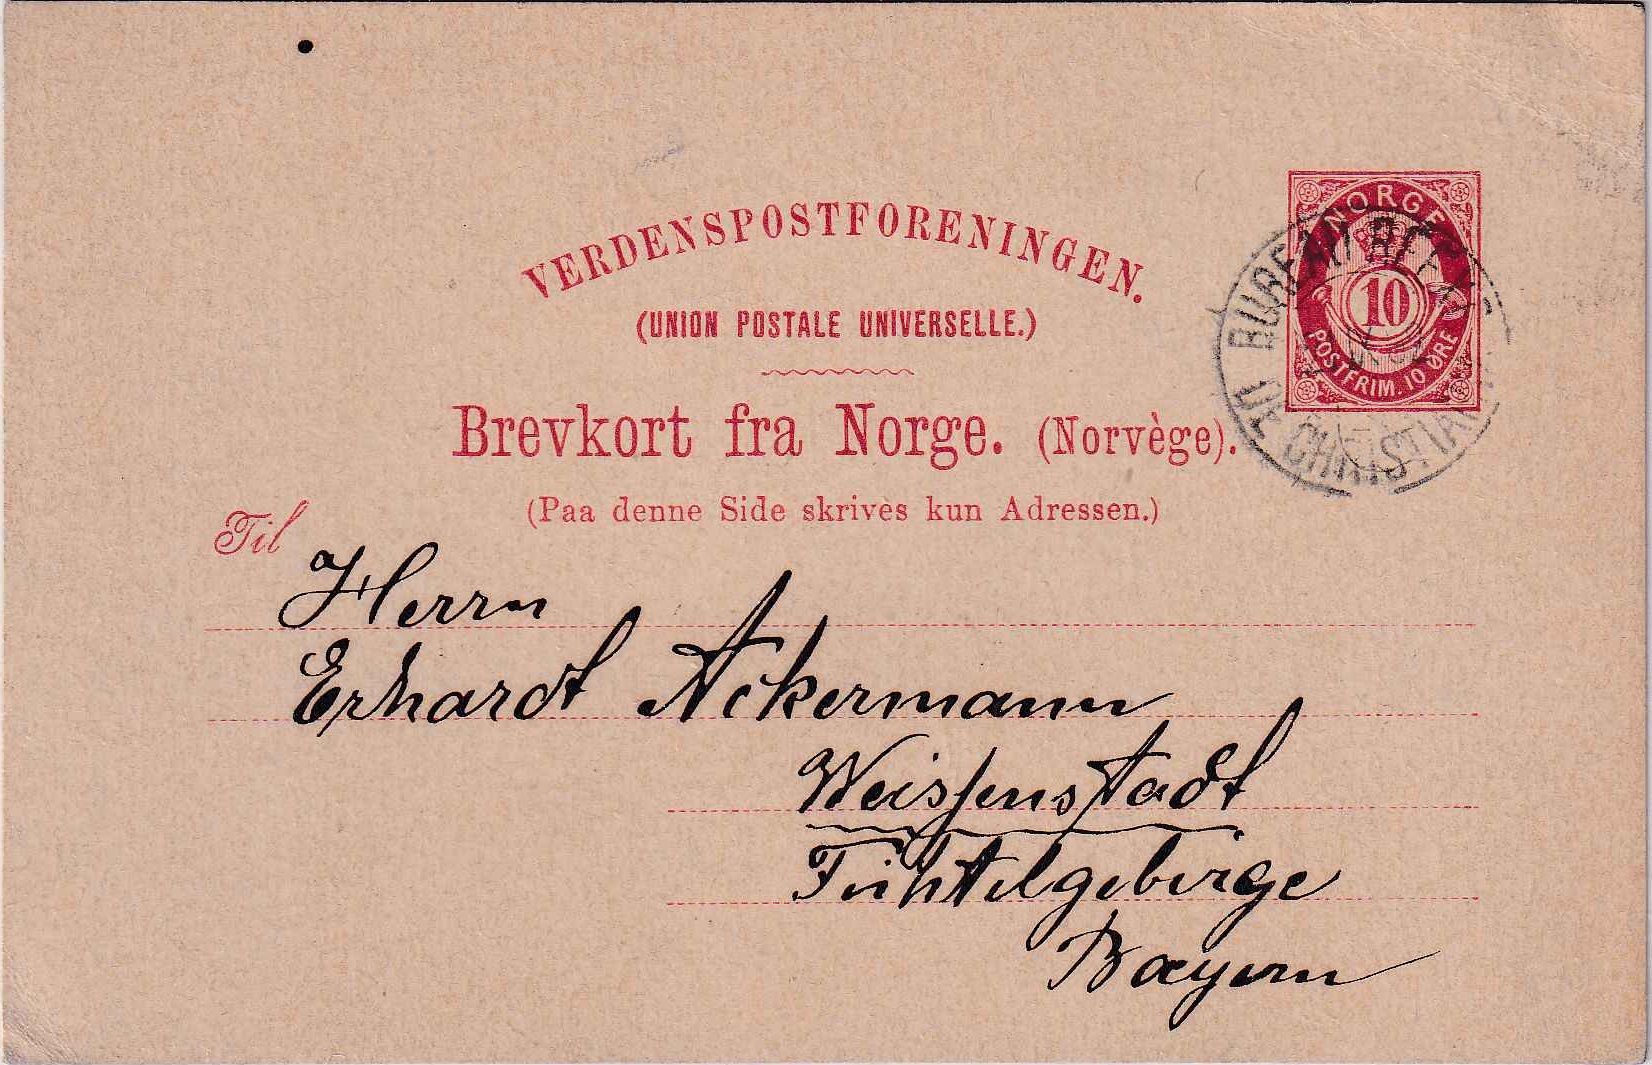 VERDENSPOSTFORENINGEN.
(UNION POSTALE UNIVERSELLE.)
Brevkort fra Norge. (Norvège).
(Paa denne Side skrives kun Adressen.)
NORGE
10
POSTFRIM. 10 ØRE
BUREAU
DE CHRISTIANIA
Til
Herrn
Erhardt Ackermann
Weissenstadt
Fichtelgebirge
Bayern